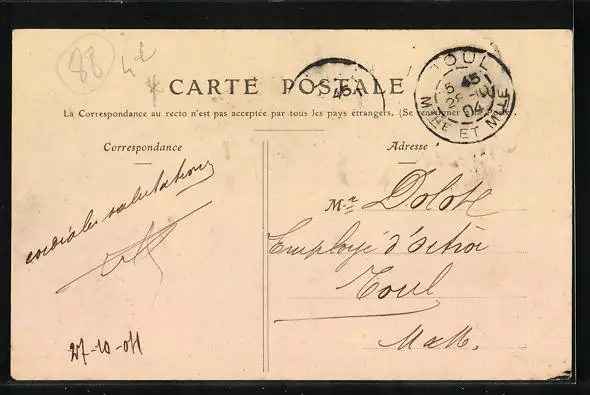 88
CARTE POSTALE
45
TOUL
5 45
28 -10
04
MTHE ET MLLE
La Correspondance au recto n'est pas acceptée par tous les pays étrangers. (Se renseigner
Correspondance
cordiales salutations
27-10-04
Adresse
Mr
Employé d'octroi
Toul
M et M.